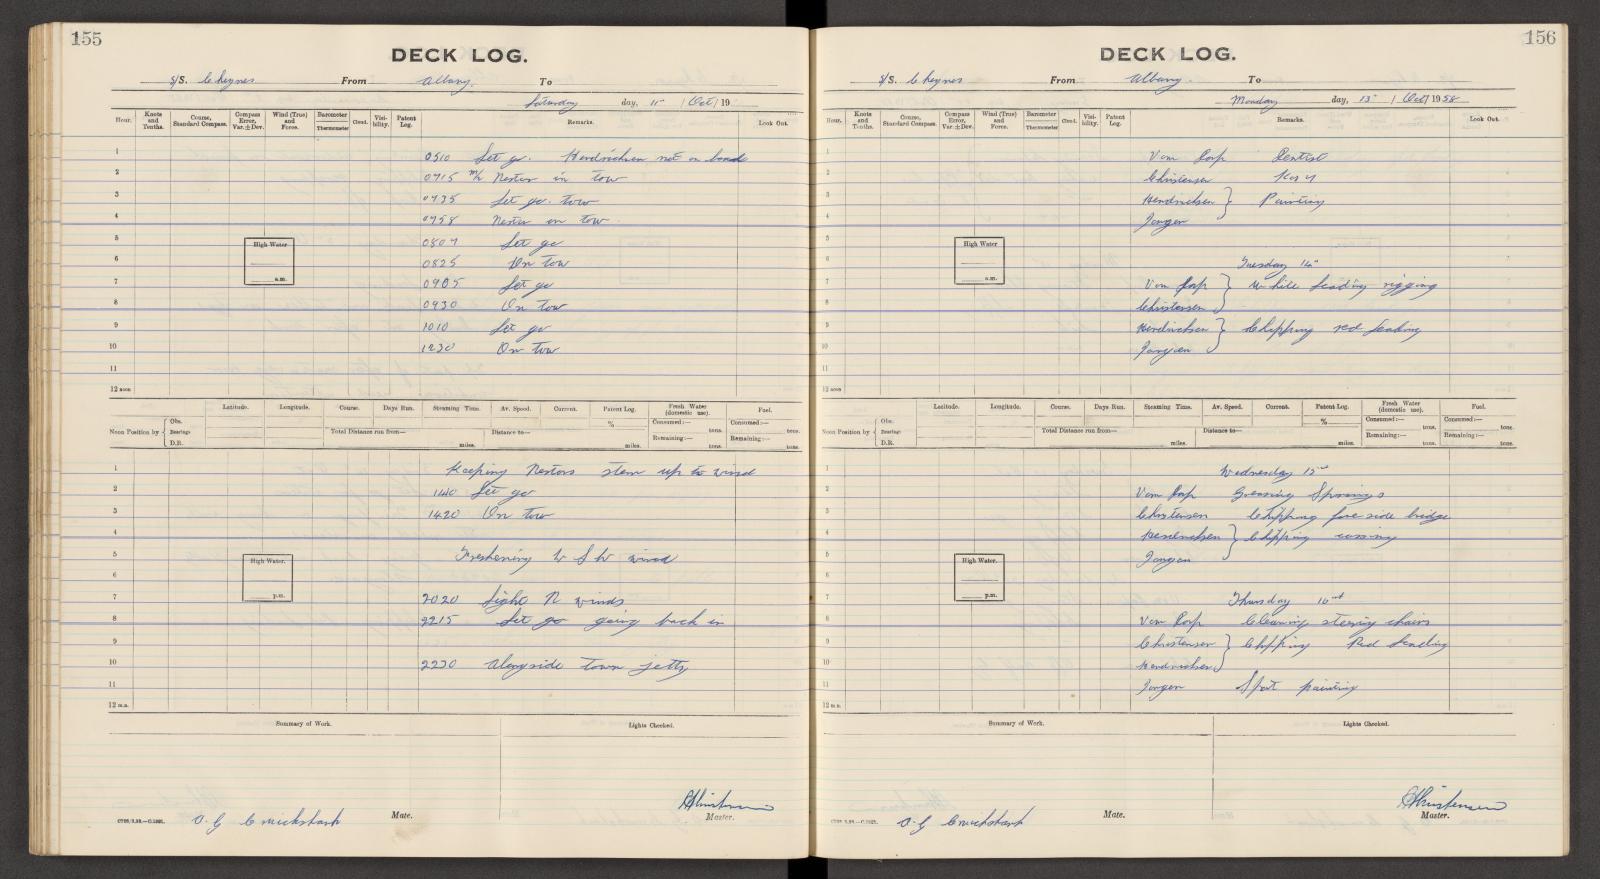 155
DECK LOG.
S/S. Cheynes From Albany. To
Saturday day, 11th / Oct / 19
Hour. Knots and Tenths. Course, Standard Compass. Compass Error, Var. ± Dev. Wind (True) and Force. Barometer Thermometer Cloud. Visibility. Patent Log. Remarks. Look Out.
1 0510 Let go. Hendrichsen not on board
2 0715 M/V Nestor in tow
3 0735 Let go. tow
4 0758 Nestor in tow
5 0807 Let go
6 0825 On tow
7 0905 Let go
8 0930 On tow
9 1010 Let go
10 1230 On tow
11
12 noon
High Water
a.m.
Latitude. Longitude. Course. Days Run. Steaming Time. Av. Speed. Current. Patent Log. Fresh Water (domestic use). Fuel.
Noon Position by Obs. Bearings D.R. % Consumed:— tons. Consumed:— tons.
Total Distance run from— miles. Distance to— miles. Remaining:— tons. Remaining:— tons.
1 Keeping Nestors stern up to wind
2 1140 Let go
3 1420 On tow
4
5 Freshening W S W wind
6
7 2020 Light N winds
8 2215 Let go going back in
9
10 2230 Alongside town jetty
11
12 m.n.
High Water.
p.m.
Summary of Work. Lights Checked.
O. G Cruickshank Mate.
Christensen
Master.
156
DECK LOG.
S/S. Cheynes From Albany. To
Monday day, 13th / Oct / 1958
Hour. Knots and Tenths. Course, Standard Compass. Compass Error, Var. ± Dev. Wind (True) and Force. Barometer Thermometer Cloud. Visibility. Patent Log. Remarks. Look Out.
1 Van Dorp Dentist
2 Christensen
3 Hendrichsen } Painting
4 Jorgen
5
6 Tuesday 14th
7 Van Dorp } White leading rigging
8 Christensen
9 Hendrichsen } Chipping red leading
10 Jorgen
11
12 noon
High Water
a.m.
Latitude. Longitude. Course. Days Run. Steaming Time. Av. Speed. Current. Patent Log. Fresh Water (domestic use). Fuel.
Noon Position by Obs. Bearings D.R. % Consumed:— tons. Consumed:— tons.
Total Distance run from— miles. Distance to— miles. Remaining:— tons. Remaining:— tons.
1 Wednesday 15th
2 Van Dorp Greasing Springs
3 Christensen Chipping fore side bridge
4 Hendrichsen } Chipping casing
5 Jorgen
6
7 Thursday 16th
8 Van Dorp Cleaning steering chains
9 Christensen } Chipping Red leading
10 Hendrichsen
11 Jorgen Spot painting
12 m.n.
High Water.
p.m.
Summary of Work. Lights Checked.
O. G Cruickshank Mate.
Christensen
Master.